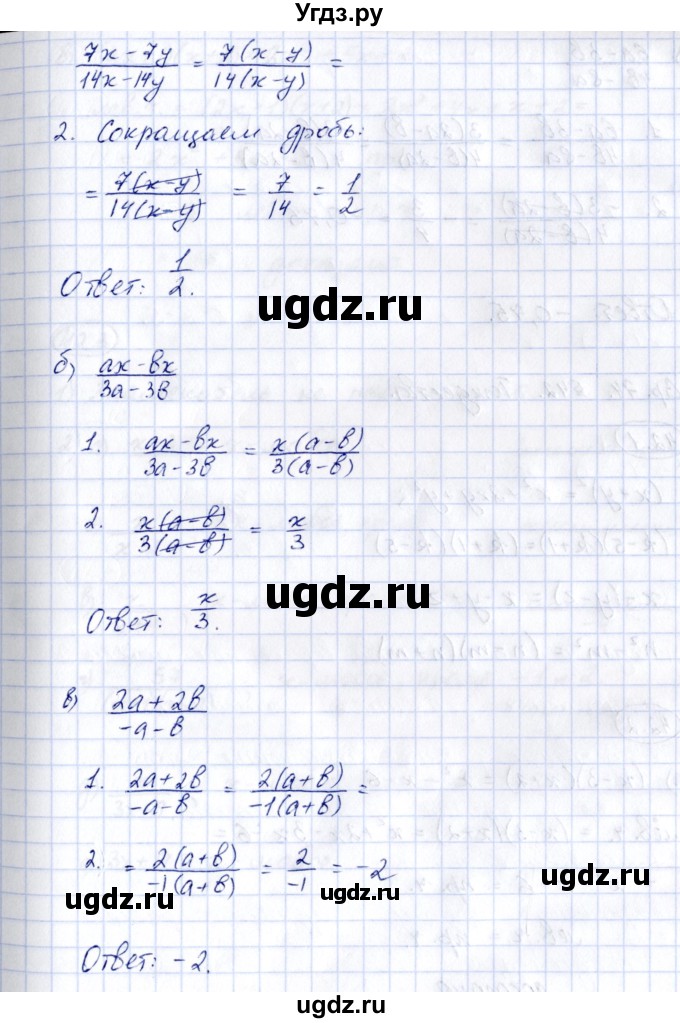 Угдз.ру
(7x - 7y)/(14x - 14y) = 7(x - y)/14(x - y) =
2. Сокращаем дробь:
= 7(x - y)/14(x - y) = 7/14 = 1/2
Ответ: 1/2.
ugdz.ru
ugdz.ru
б) (ax - bx)/(3a - 3b)
1. (ax - bx)/(3a - 3b) = x(a - b)/3(a - b)
2. x(a - b)/3(a - b) = x/3
ugdz.ru
ugdz.ru
Ответ: x/3.
в) (2a + 2b)/(-a - b)
1. (2a + 2b)/(-a - b) = 2(a + b)/-1(a + b) =
2. = 2(a + b)/-1(a + b) = 2/-1 = -2
ugdz.ru
ugdz.ru
Ответ: -2.
ugdz.ru